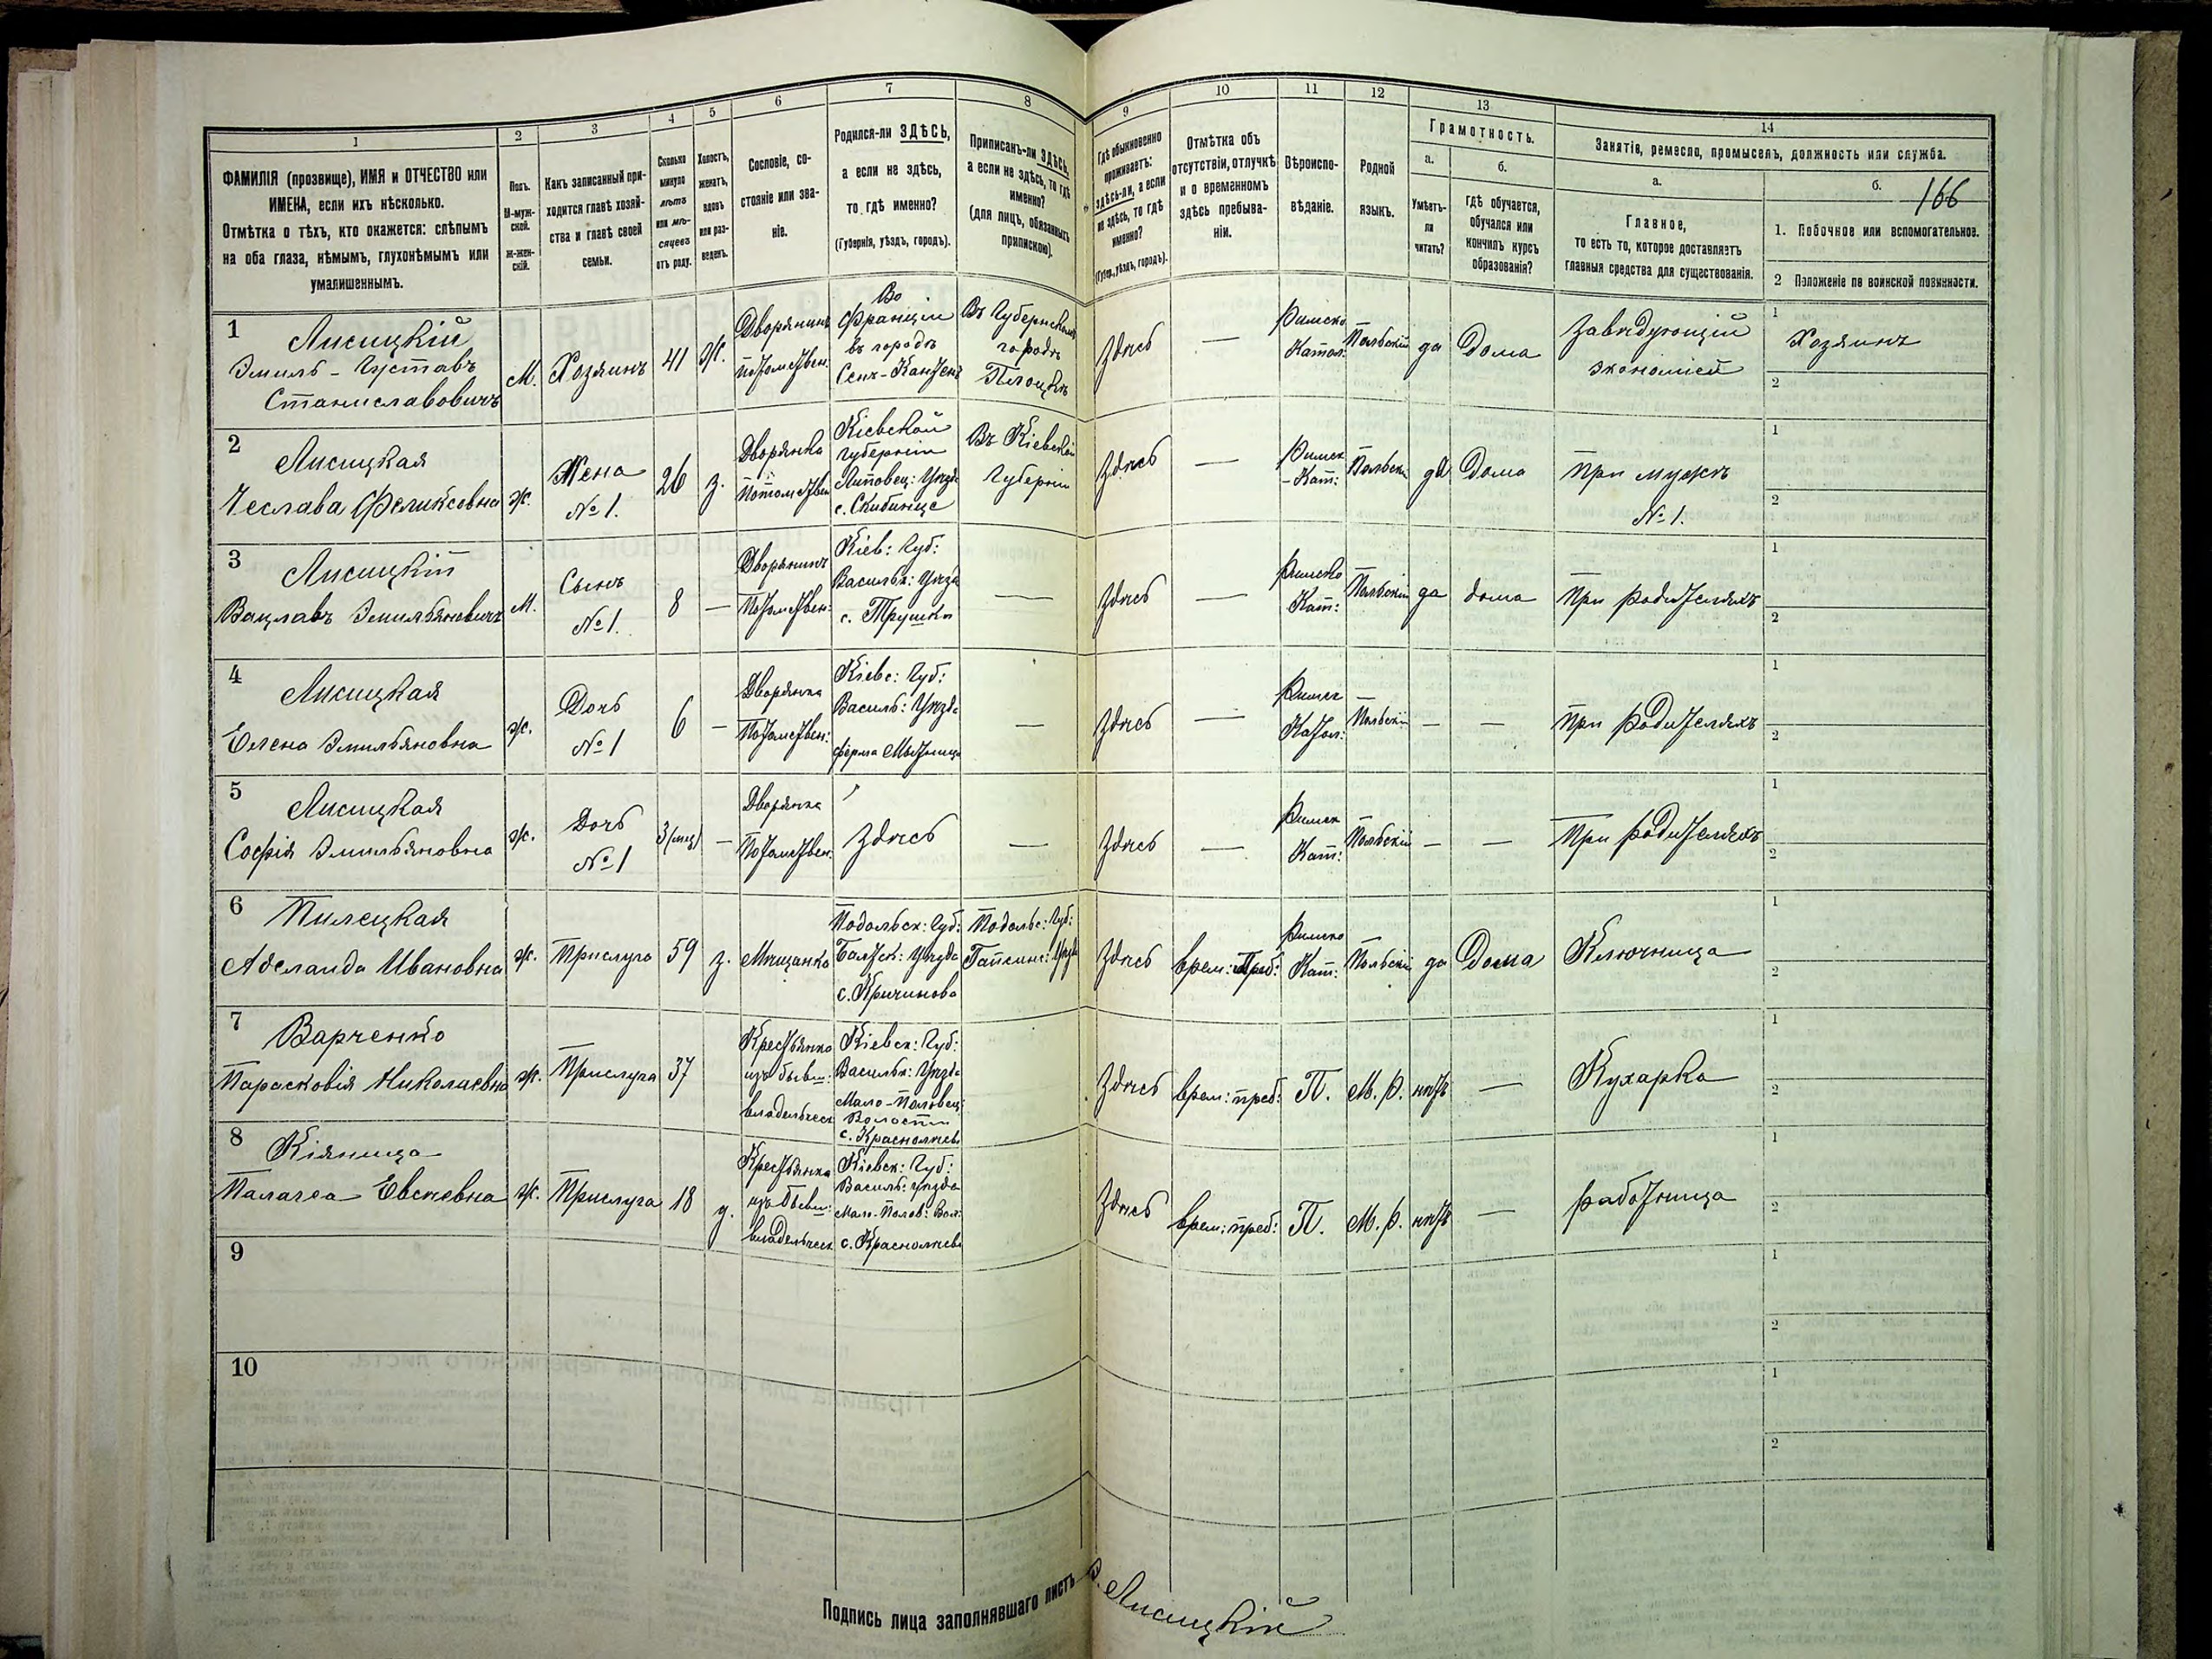 1 2 3 4 5 6 7 8 9 10 11 12 13 14
ФАМИЛІЯ (прозвище), ИМЯ и ОТЧЕСТВО или
ИМЕНА, если ихъ нѣсколько.
Отмѣтка о тѣхъ, кто окажется: слѣпымъ
на оба глаза, нѣмымъ, глухонѣмымъ или
умалишеннымъ.
Полъ.
М-муж-
ской.
Ж-жен-
скій.
Какъ записанный при-
ходится главѣ хозяй-
ства и главѣ своей
семьи.
Сколько
минуло
лѣтъ
или мѣ-
сяцевъ
отъ роду.
Холостъ,
женатъ,
вдовъ
или раз-
веденъ.
Сословіе, со-
стояніе или зва-
ніе.
Родился-ли ЗДѢСЬ,
а если не здѣсь,
то гдѣ именно?
(Губернія, уѣздъ, городъ).
Приписанъ-ли ЗДѢСЬ,
а если не здѣсь, то гдѣ
именно?
(для лицъ, обязанныхъ
припискою).
Гдѣ обыкновенно
проживаетъ:
здѣсь-ли, а если
не здѣсь, то гдѣ
именно?
(Губер., уѣздъ, городъ).
Отмѣтка объ
отсутствіи, отлучкѣ
и о временномъ
здѣсь пребыва-
ніи.
Вѣроиспо-
вѣданіе.
Родной
языкъ.
Грамотность.
а.
Умѣетъ-
ли
читать?
б.
гдѣ обучается,
обучался или
кончилъ курсъ
образованія?
Занятіе, ремесло, промыселъ, должность или служба.
а.
Главное,
то есть то, которое доставляетъ
главныя средства для существованія.
б.
166
1. Побочное или вспомогательное.
2 Положеніе по воинской повинности.
1
Лисицкій
Эмиль-Густавъ
Станиславовичъ
М.
Хозяинъ
41
Ж.
Дворянинъ
потомствен.
Во
Франціи
въ городѣ
Сенъ-Кантенъ
Въ Губернскомъ
городѣ
Плоцкѣ
Здѣсь
—
Римско
Катол:
Польскій
да
Дома
Завѣдующій
экономіей
1
Хозяинъ
2
2
Лисицкая
Чеслава Феликсовна
ж.
Жена
№ 1.
26
з.
Дворянка
Потомствен
Кіевской
Губерніи
Липовец: Уѣзда
с. Скибинце
Въ Кіевской
Губерніи
Здѣсь
—
Римск
-Кат:
Польскі
да
Дома
При мужѣ
№ 1.
1
2
3
Лисицкій
Вацлавъ Эмильяновичъ
М.
Сынъ
№ 1.
8
—
Дворянинъ
Потомствен:
Кіев: Губ:
Васильк: Уѣзда
с. Трушки
—
Здѣсь
—
Римско
Кат:
Польскій
да
дома
При родителяхъ
1
2
4
Лисицкая
Елена Эмильяновна
ж.
Дочь
№ 1
6
—
Дворянка
Потомствен:
Кіевс: Губ:
Василь: Уѣзда
ферма
—
Здѣсь
—
Римск
Катол:
Польскій
—
—
При родителяхъ
1
2
5
Лисицкая
Софія Эмильяновна
ж.
Дочь
№ 1
3 (мѣц)
—
Дворянка
Потомствен.
Здѣсь
—
Здѣсь
—
Римск
Кат:
Польскій
—
—
При родителяхъ
1
2
6
Пилецкая
Аделаида Ивановна
ж.
Прислуга
59
з.
Мѣщанка
Подольск: Губ:
Балтск: Уѣзда
с. Кричиново
Подольс: Губ:
Гайсинс: Уѣзда
Здѣсь
врем: Преб:
Римско
Кат:
Польскій
да
Дома
Ключница
1
2
7
Варченко
Парасковія Николаевна
ж.
Прислуга
37
Крестьянка
изъ бывш:
владельческ
Кіевск: Губ:
Васильк: Уѣзда
Мало-Половец:
Волости
с. Краснолѣсы
Здѣсь
врем: преб:
П.
М. р.
нѣтъ
—
Кухарка
1
2
8
Кіяница
Палагеа Евсѣевна
ж.
Прислуга
18
д.
Крестьянка
изъ бывш:
владельческ
Кіевск: Губ:
Василь: уѣзда
Мало-Полов: Вол:
с. Краснолѣсы
Здѣсь
врем: преб:
П.
М. р.
нѣтъ
—
работница
1
2
9
1
2
10
1
2
Подпись лица заполнявшаго листъ Э. Лисицкій